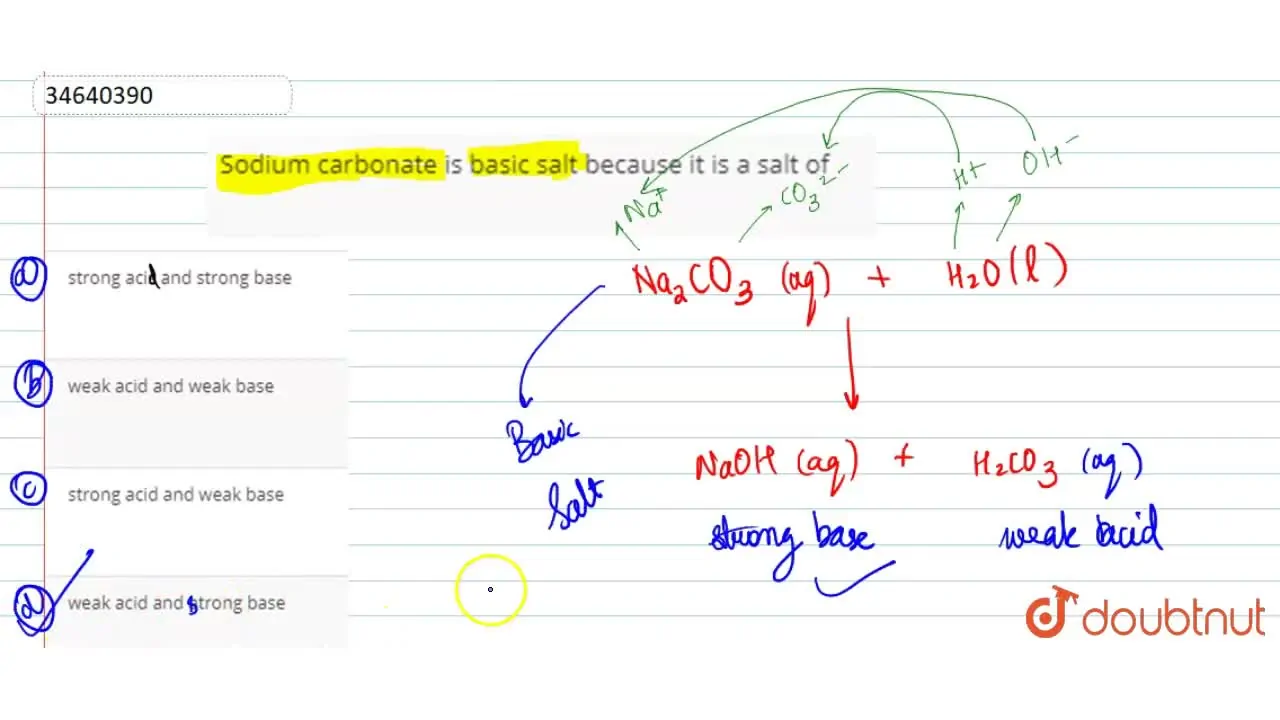 34640390
Sodium carbonate is basic salt because it is a salt of
Na⁺ CO₃²⁻ H+ OH⁻
a strong acid and strong base
Na₂CO₃ (aq) + H₂O(l)
b weak acid and weak base
Basic
Salt
NaOH (aq) + H₂CO₃ (aq)
c strong acid and weak base
strong base weak acid
d weak acid and strong base
doubtnut